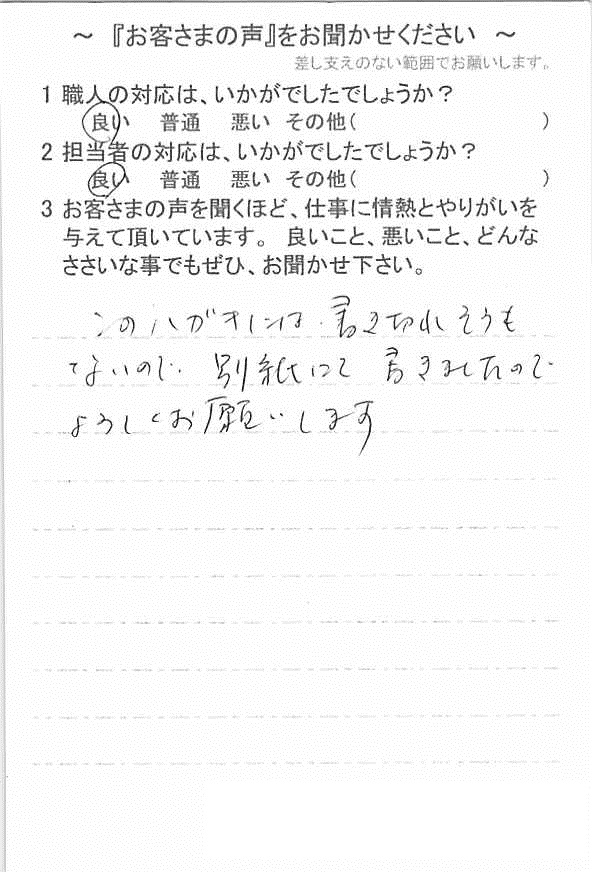 ～ 『お客さまの声』をお聞かせください ～
差し支えのない範囲でお願いします。
1 職人の対応は、いかがでしたでしょうか？
良い 普通 悪い その他( )
2 担当者の対応は、いかがでしたでしょうか？
良い 普通 悪い その他( )
3 お客さまの声を聞くほど、仕事に情熱とやりがいを
与えて頂いています。 良いこと、悪いこと、どんな
ささいな事でもぜひ、お聞かせ下さい。
このハガキには 書き切れそうも
ないので 別紙にて 書きましたので
よろしくお願いします